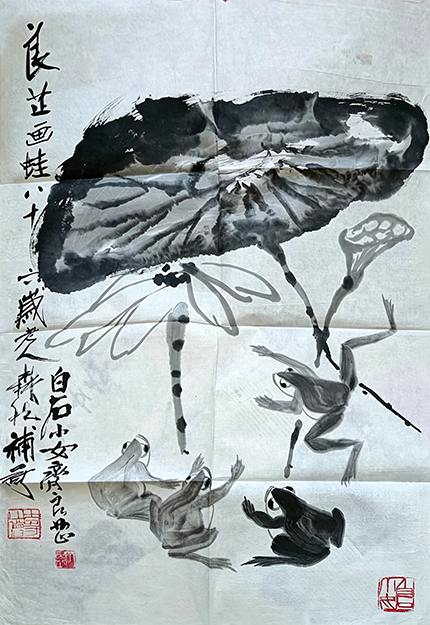 良芷画蛙八十六歲老人松補荷
白石小女齊良芷